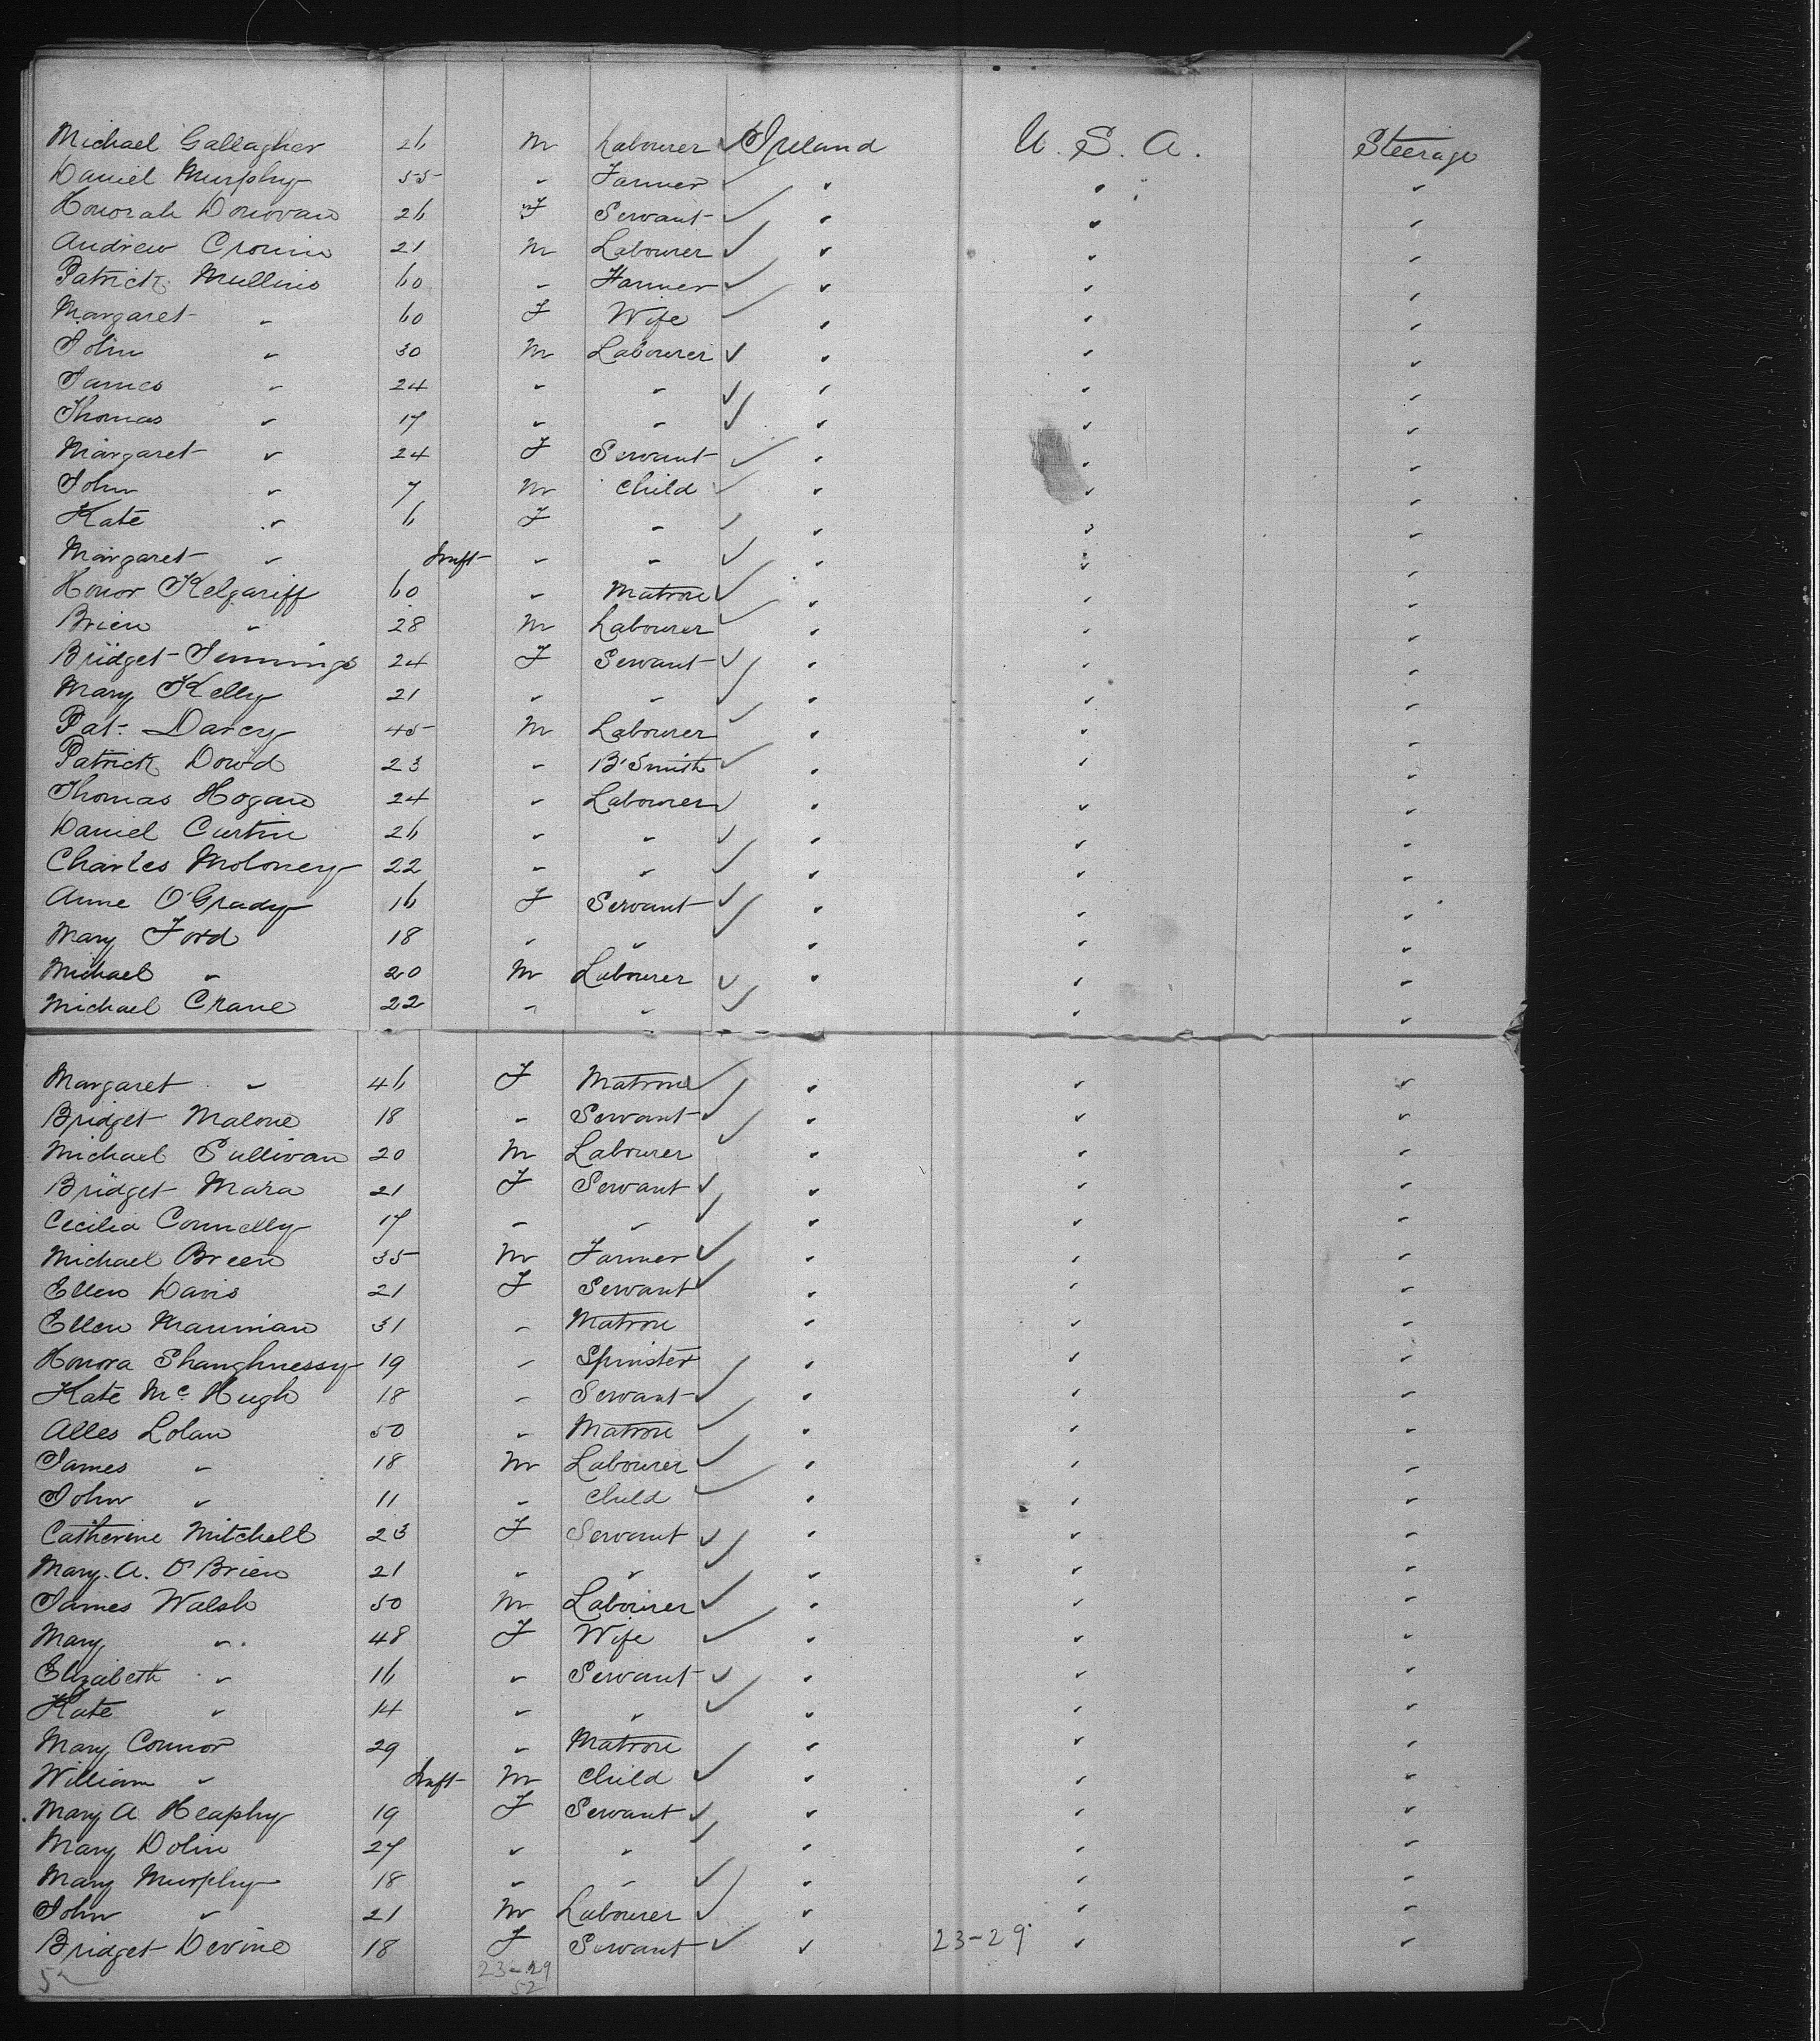 Michael Gallagher 26 M Labourer ✓ Ireland U. S. A. Steerage
Daniel Murphy 55 " Farmer ✓ " " "
Honorah Donovan 26 F Servant ✓ " " "
Andrew Cronin 21 M Labourer ✓ " " "
Patrick Mullins 60 " Farmer ✓ " " "
Margaret " 60 F Wife ✓ " " "
John " 30 M Labourer ✓ " " "
James " 24 " " ✓ " " "
Thomas " 17 " " ✓ " " "
Margaret " 24 F Servant ✓ " " "
John " 7 M Child ✓ " " "
Kate " 6 F " ✓ " " "
Margaret " Inft " " ✓ " " "
Honor Kelgariff 60 " Matron ✓ " " "
Brien " 28 M Labourer ✓ " " "
Bridget Jennings 24 F Servant ✓ " " "
Mary Kelly 21 " " ✓ " " "
Pat. Darcy 45 M Labourer ✓ " " "
Patrick Dowd 23 " B'Smith ✓ " " "
Thomas Hogan 24 " Labourer ✓ " " "
Daniel Curtin 26 " " ✓ " " "
Charles Moloney 22 " " ✓ " " "
Anne O'Grady 16 F Servant ✓ " " "
Mary Ford 18 " " ✓ " " "
Michael " 20 M Labourer ✓ " " "
Michael Crane 22 " " ✓ " "
Margaret " 46 F Matron ✓ " " "
Bridget Malone 18 " Servant ✓ " " "
Michael Sullivan 20 M Labourer ✓ " " "
Bridget Mara 21 F Servant ✓ " " "
Cecilia Connelly 17 " " ✓ " " "
Michael Breen 35 M Farmer ✓ " " "
Ellen Davis 21 F Servant ✓ " " "
Ellen 31 " Matron " " "
Honora Shaughnessy 19 " Spinster " " "
Kate McHugh 18 " Servant ✓ " " "
Alles Lolan 50 " Matron ✓ " " "
James " 18 M Labourer ✓ " " "
John " 11 " Child ✓ " " "
Catherine Mitchell 23 F Servant ✓ " " "
Mary. A. O'Brien 21 " " ✓ " " "
James Walsh 50 M Labourer ✓ " " "
Mary " 48 F Wife ✓ " " "
Elizabeth " 16 " Servant ✓ " " "
Kate " 14 " " ✓ " " "
Mary Connor 29 " Matron " " "
William " Inft M Child ✓ " " "
Mary A Heaphy 19 F Servant ✓ " " "
Mary Dolin 27 " " ✓ " " "
Mary Murphy 18 " " ✓ " " "
John " 21 M Labourer ✓ " " "
Bridget Devine 18 F Servant ✓ " 23-29 " "
52 23-29
52